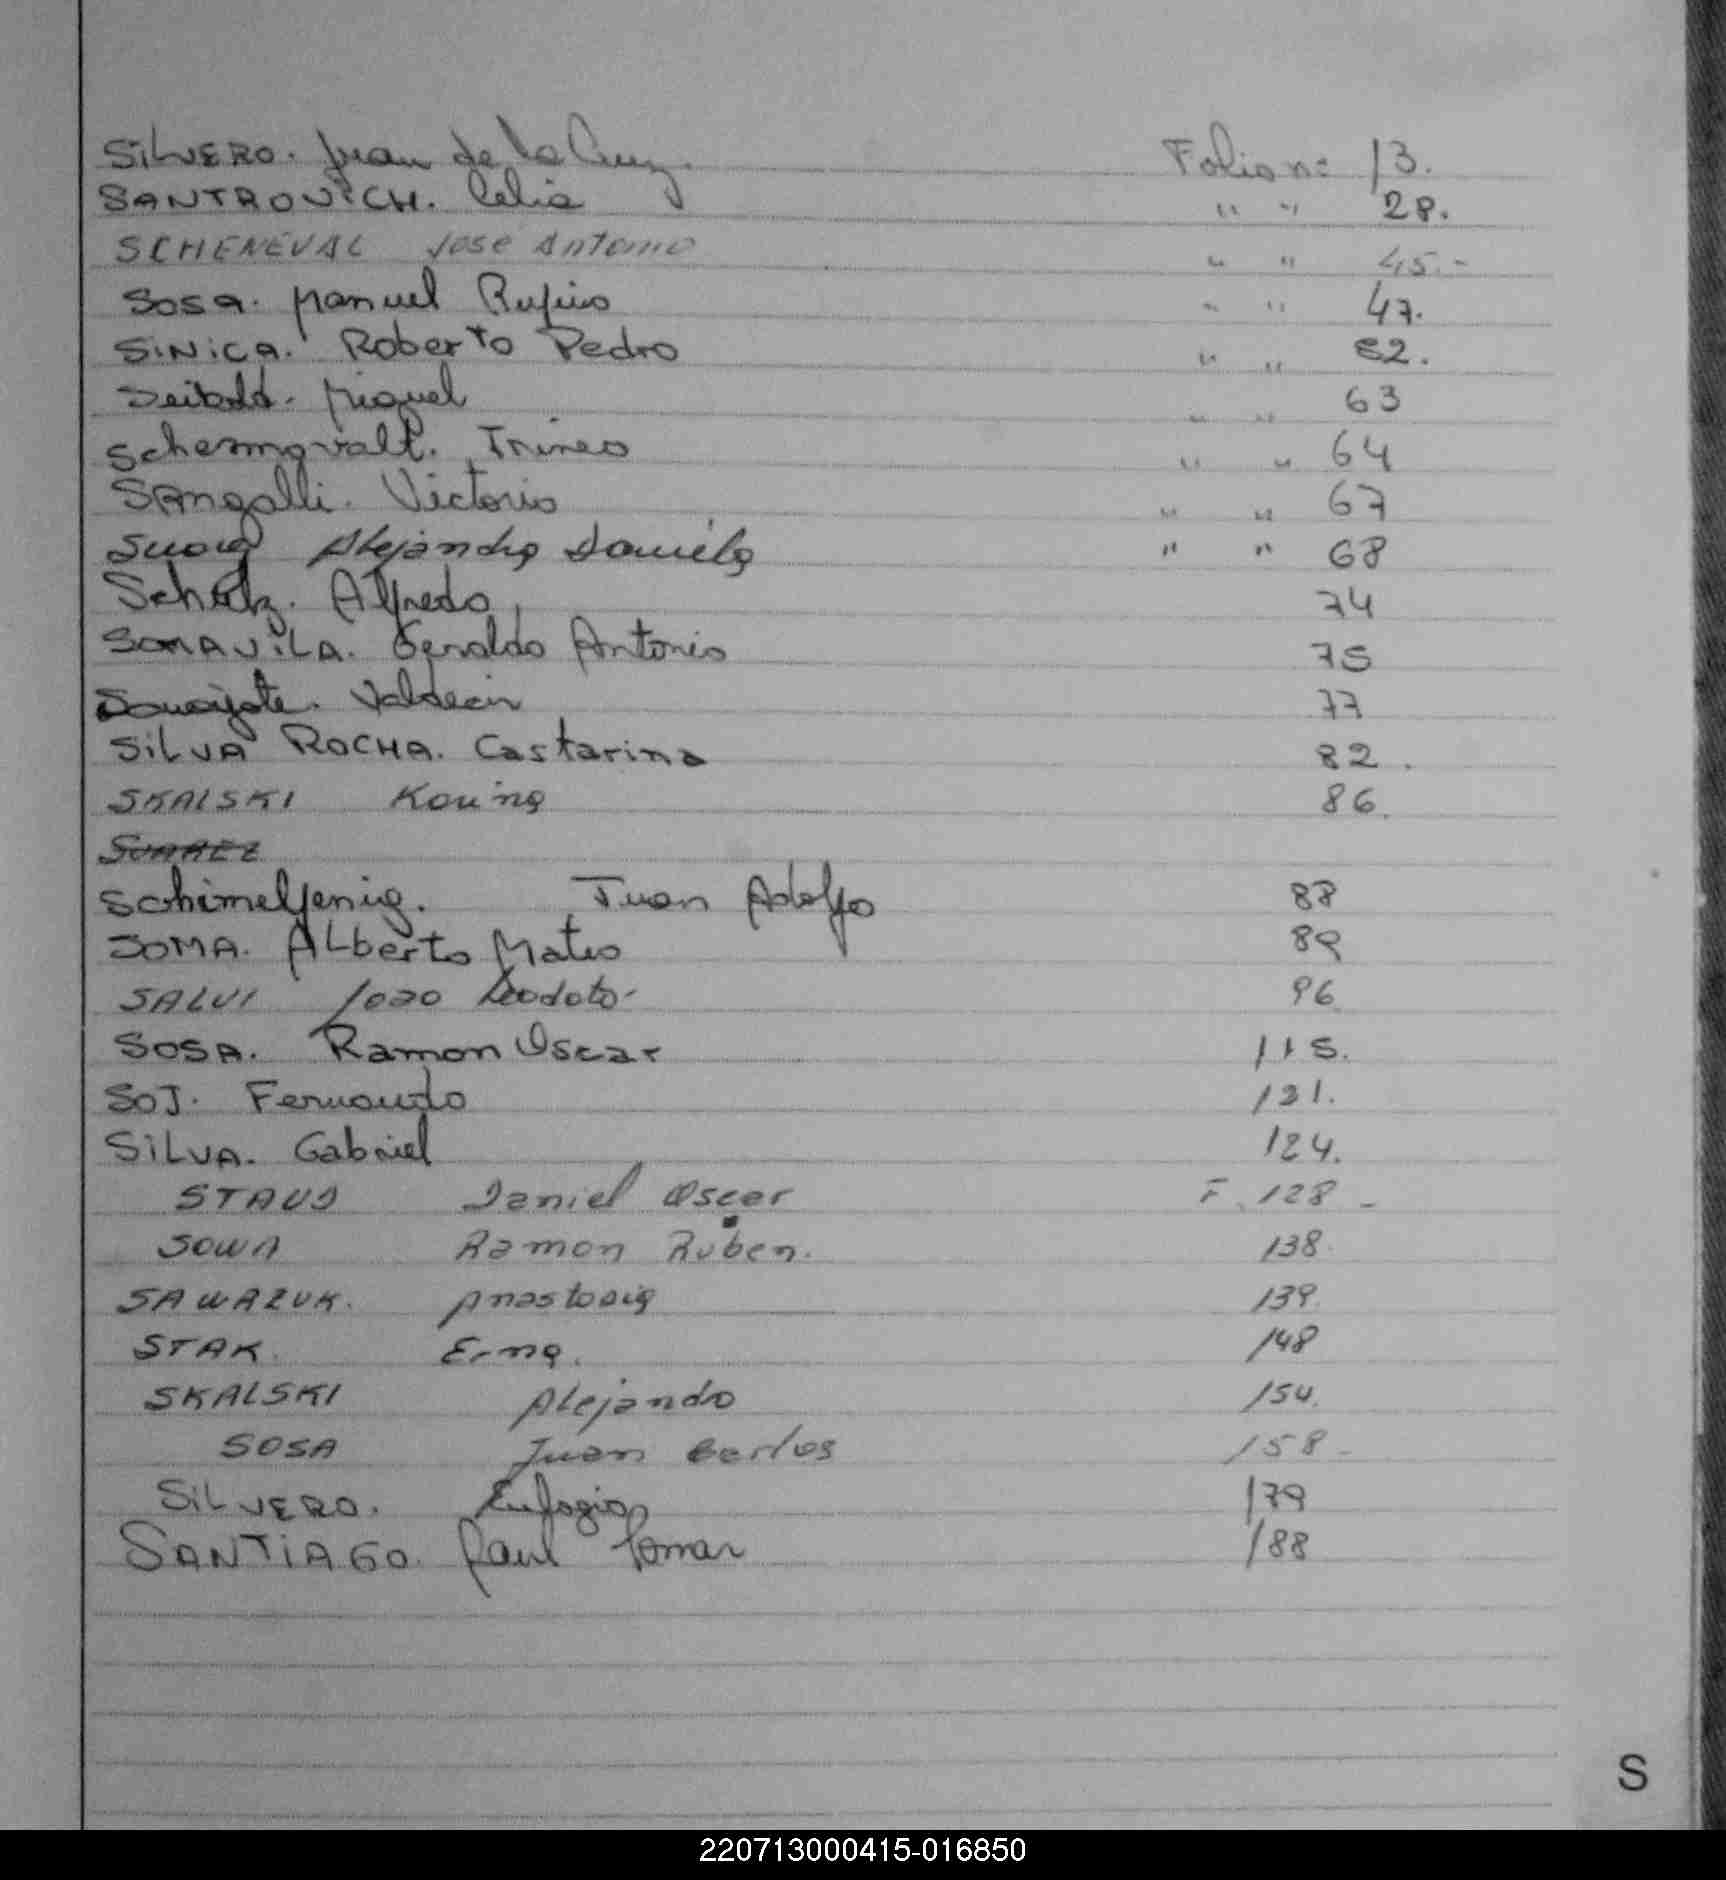 SILVERO. Juan de la Cruz. Folio n: 13.
SANTROVICH. Celia " " 28.
SCHENEVAL Jose Antonio " " 45.-
Sosa. Manuel Rufino " " 47.
SiNiCA. Roberto Pedro " " 52.
Seibold. Miguel " " 63
Irineo " " 64
SAngalli. Victorio " " 67
Alejandra Daniela " " 68
Schulz. Alfredo 74
SOMAVILA. Geraldo Antonio 75
Valdecir 77
SiLVA ROCHA. Castarina 82.
SKALSKI 86.
SUAREZ
Schimelfenig. Juan Adolfo 88
SOMA. ALberto Mateo 89
SALVI Joao Deodoto. 96
SOSA. Ramon Oscar 115.
SOJ. Fernando 121.
SiLVA. Gabriel 124.
STAUD Daniel Oscar F. 128 -
SOWA Ramon Ruben. 138.
SAWAZUK. Anastosia 139.
STAK. Erna. 148
SKALSKI Alejandro 154.
SOSA Juan Carlos 158.-
SiLVERO. Eulogio 179
SANTiAGO. Raul Tomar 188
S
220713000415-016850